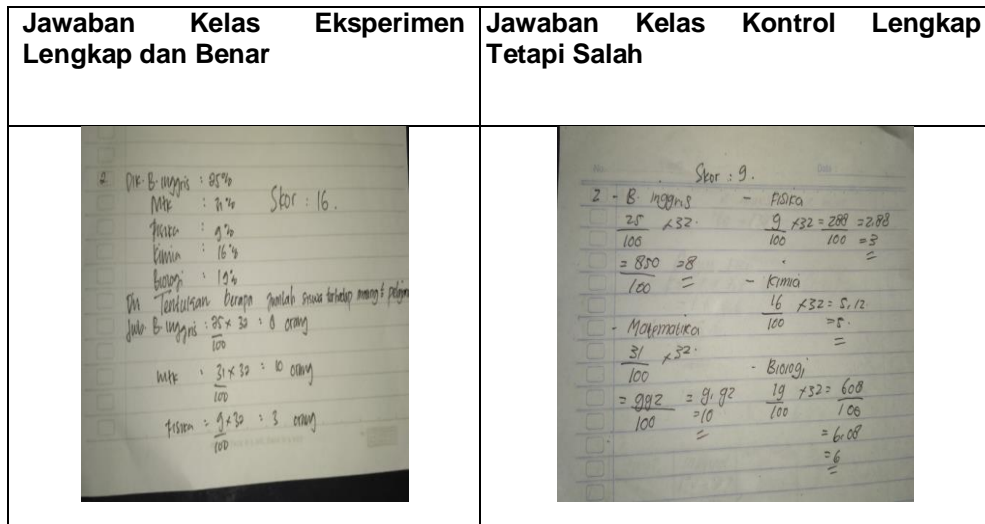 Jawaban Kelas Eksperimen
Lengkap dan Benar
Jawaban Kelas Kontrol Lengkap
Tetapi Salah
2 Dik. B. Inggris : 25%
Mtk : 31%
Fisika : 9%
Kimia : 16%
Biologi : 19%
Skor : 16.
Dit Tentukan berapa jumlah siswa terhadap masing² pelajaran
Jwb. B. Inggris : 25 x 32 : 8 orang
100
Mtk : 31 x 32 : 10 orang
100
Fisika = 9 x 32 : 3 orang
100
Skor : 9.
2 - B. Inggris
25 x 32.
100
= 850 = 8
100
- Matematika
31 x 32.
100
= 992 = 9,92
100 = 10
- Fisika
9 x 32 = 288 = 2,88
100 100 = 3
- Kimia
16 x 32 = 5,12
100 = 5.
- Biologi
19 x 32 = 608
100 100
= 6,08
= 6